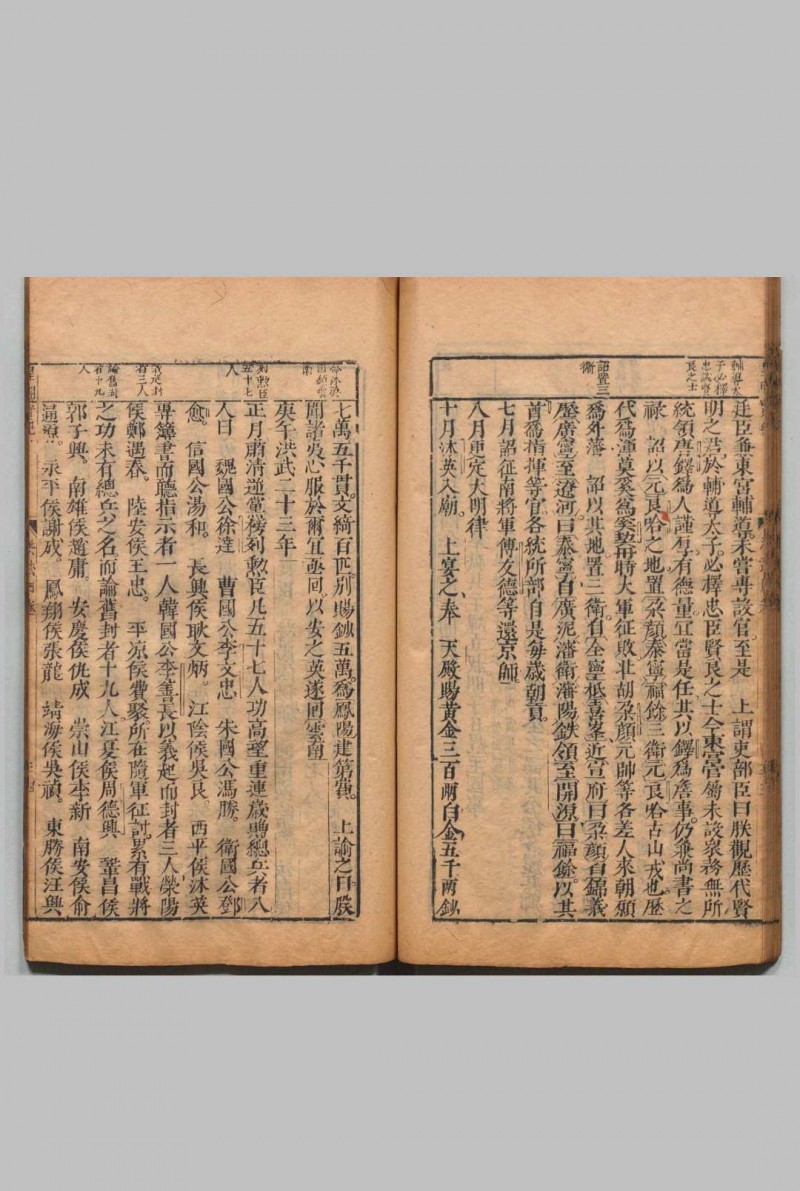 輔導太
子必擇
忠臣賢
良之士
廷臣兼東宮輔導未嘗專設官至是　上謂吏部臣曰朕觀歷代賢
明之君於輔導太子必擇忠臣賢良之士今東宮官屬未設衆務無所
統領唐鐸爲人謹厚有德量宜當是任其以鐸爲詹事仍兼尚書之
祿　詔以元良哈之地置朶顏泰寧福餘三衛元良哈古山戎也歷
代爲潼莫奚爲奚契丹時大軍征敗北胡朶顏元帥等各差人來朝願
詔置三
衛
爲外藩　詔以其地置三衛自全寧抵喜峯近宣府曰朶顏自錦義
歷廣寧至遼河曰泰寧自廣泥瀋衛瀋陽鉄領至開源曰福餘以其
酋爲指揮等官各統所部自是每歲朝貢
七月詔征南將軍傅友德等還京師
八月更定大明律
十月沐英入廟　上宴之奉　天殿賜黃金三百兩白金五千兩鈔
七萬五千貫文綺百匹別賜鈔五萬爲鳳陽建第資　上諭之曰朕
聞諸吳心服於爾宜亟回以安之英遂回雲南
庚午洪武二十三年
列勲臣
五十七
人
正月肅清逆黨榜列勲臣凡五十七人功高望重連歲總兵者八
人曰　魏國公徐達　曹國公李文忠　宋國公馮勝　衛國公鄧
愈　信國公湯和　長興侯耿文炳　江陰侯吳良　西平侯沐英
者三人
專簿書而聽指示者一人韓國公李善長以義起而封者三人滎陽
侯鄭遇春　陸安侯王忠　平凉侯費聚所在隨軍征討累有戰將
之功未有總兵之名而論舊封者十九人江夏侯周德興　鞏昌侯
論舊封
者十九
人
郭子興　南雄侯趙庸　安慶侯仇成　崇山侯李新　南安侯俞
通源　永平侯謝成　鳳翔侯張龍　靖海侯吳禎　東勝侯汪興